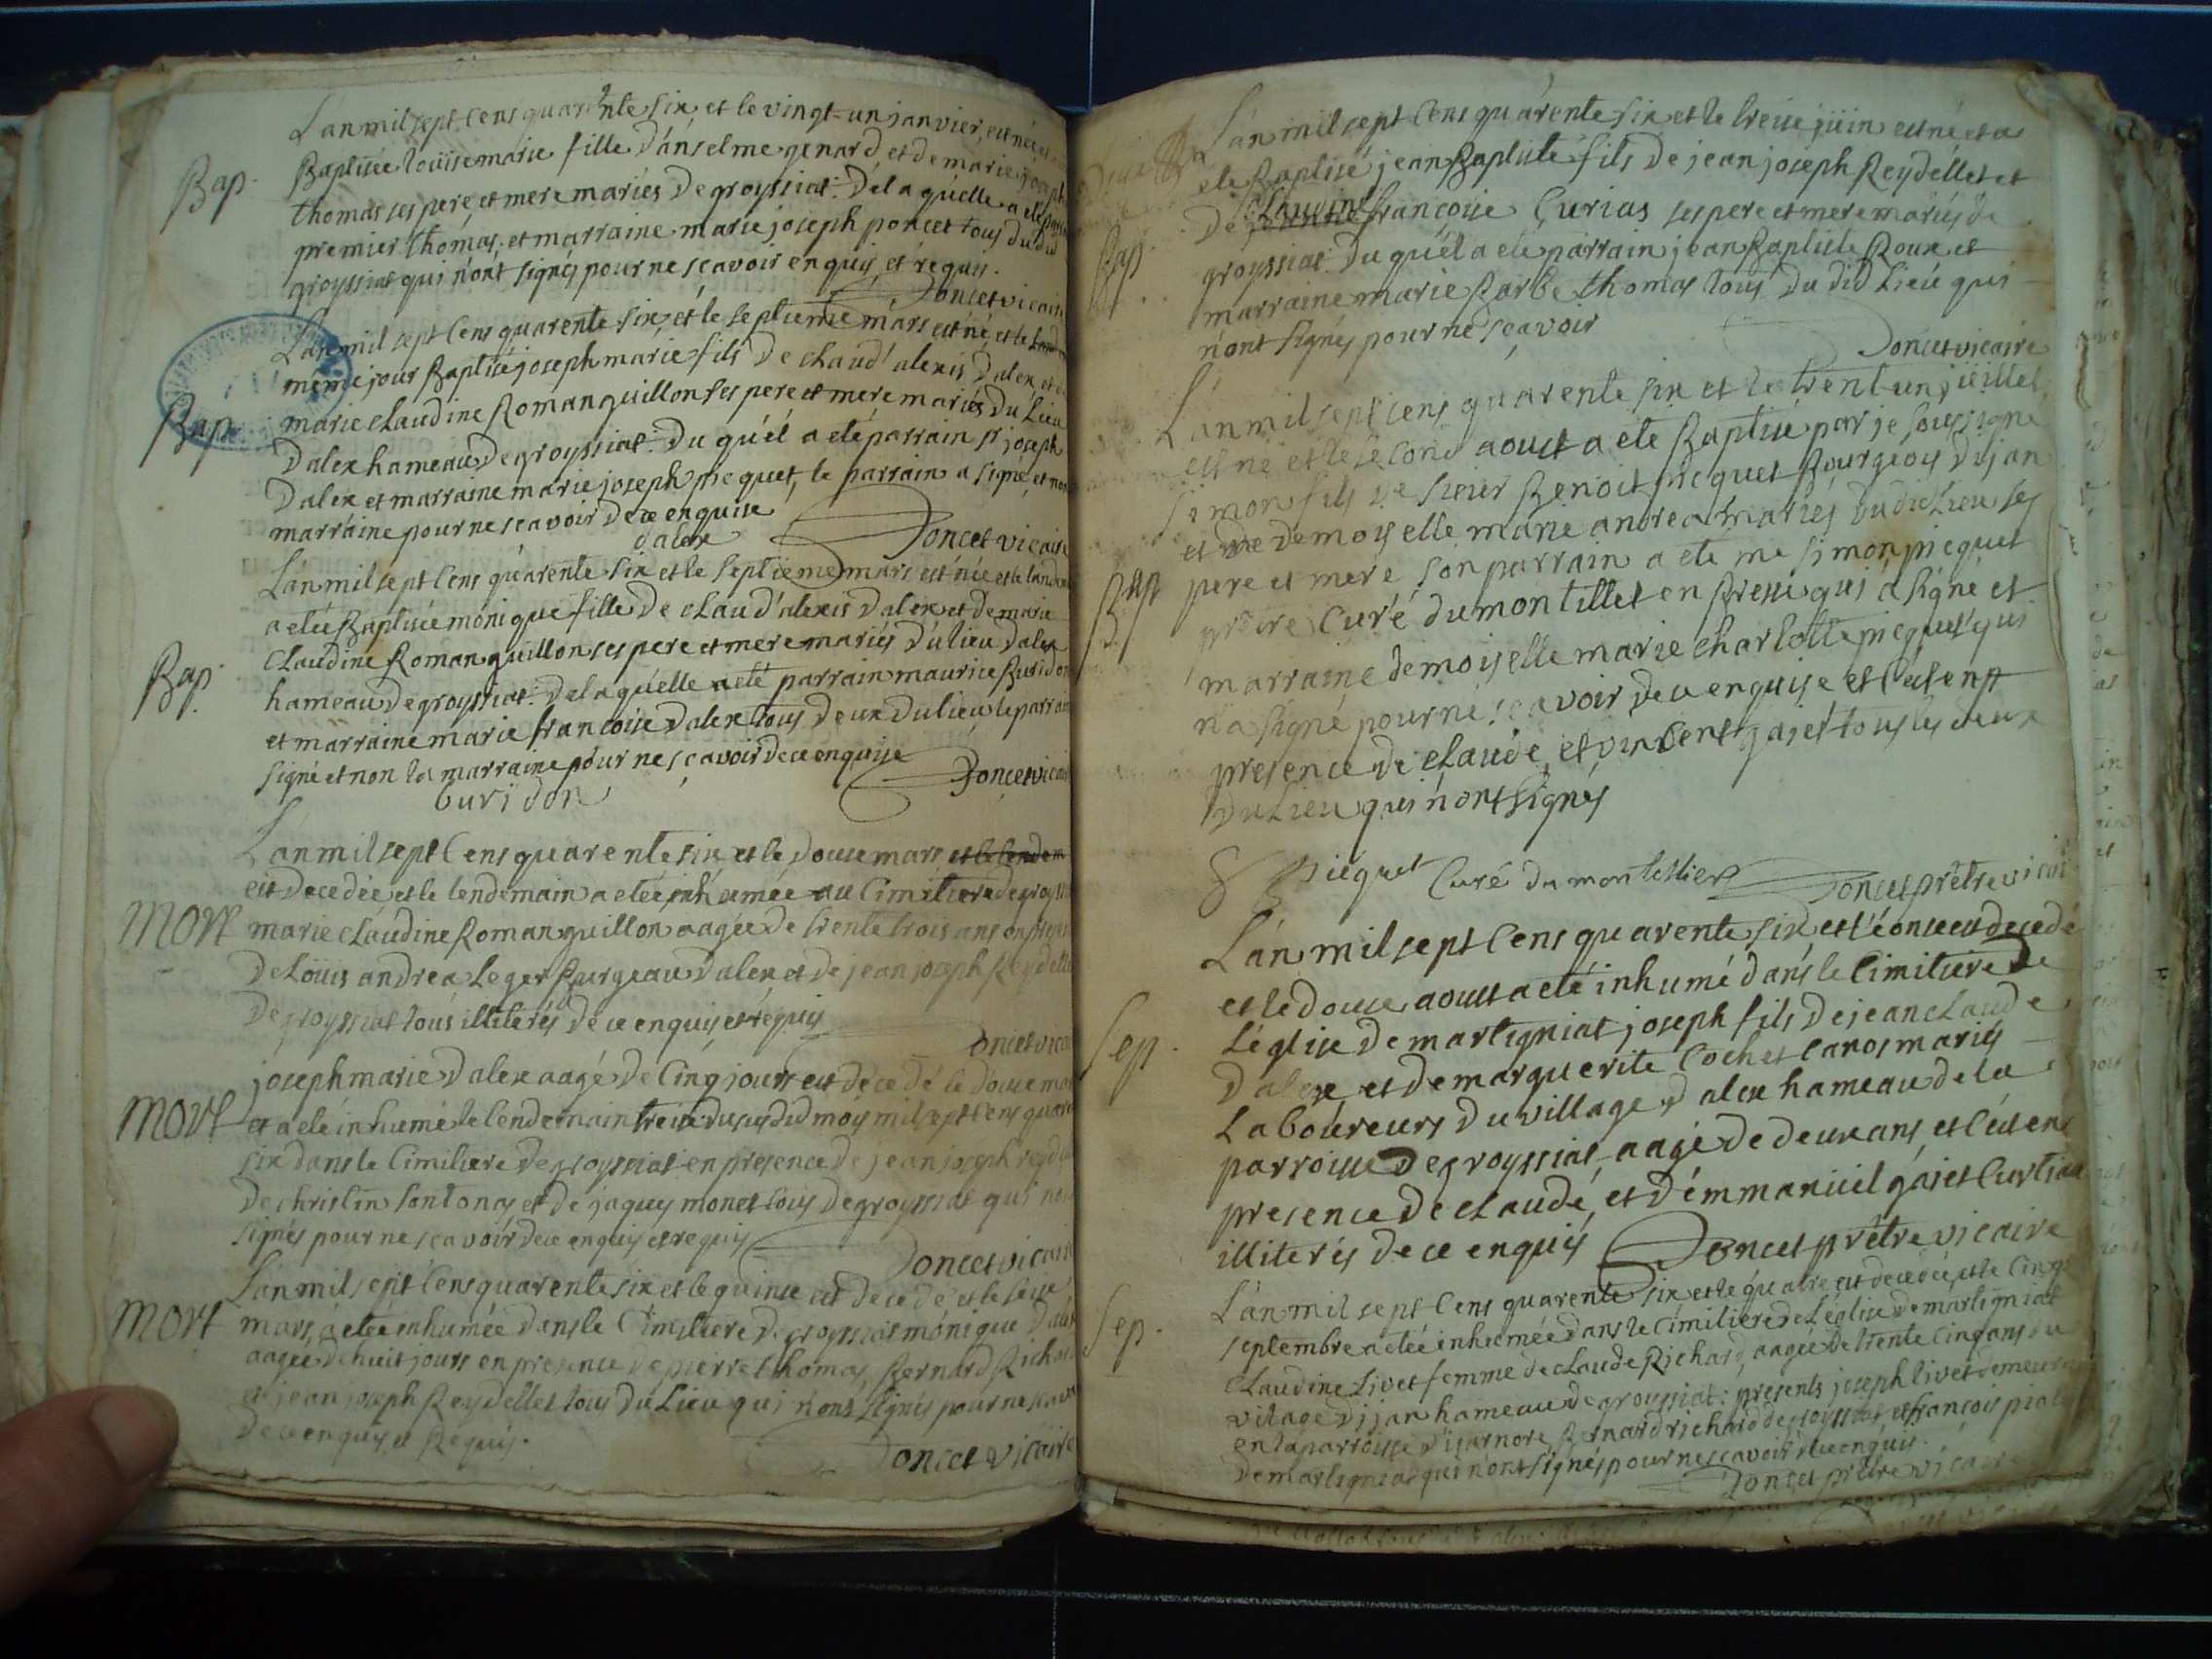 L'an mil sept Cens quarente six et le vingt-un janvier, est née et
Bap. Baptisée loüise marie fille d'anselme genard, et de marie joseph
thomas ses pere et mere mariés de groyssiat. De la quelle a eté
premier thomas, et marraine marie joseph poncet tous du dit
groyssiat qui n'ont signés pour ne sçavoir enquis et requis.
Poncet vicaire
L'an mil sept Cens quarente six, et le septieme mars est né, et le
même jour Baptisé joseph marie fils de claud' alexis dalex, et de
Bap. marie claudine Roman guillon ses pere et mere mariés du Lieu
dalex hameau de groyssiat. Du quel a eté parrain sr joseph
dalex et marraine marie joseph picquet, le parrain a signé, et non
marraine pour ne scavoir de ce enquise
dalex Poncet vicaire
L'an mil sept Cens quarente six et le septieme mars est née et le
a eteé Baptisée monique fille de claud' alexis dalex et de marie
Bap. claudine Roman guillon ses pere et mere mariés du lieu dalex
hameau de groyssiat. De la quelle a eté parrain maurice Buridon
et marraine marie francoise dalex tous deux du lieu le parrain
signé et non la marraine pour ne sçavoir de ce enquise
Buridon Poncet vicaire
L'an mil sept Cens quarente six et le douse mars et le lendem
est decedée et le lendemain a eteé inhumée au Cimitiere de groyssiat
Mort marie claudine Roman guillon aagée de trente trois ans en presen
de Loüis andrea Leger Burgeaud dalex et de jean joseph Reydellet
de groyssiat tous illiterés de ce enquis et requis
Poncet vicaire
joseph marie dalex aagé de Cinq jours est décedé le douse mars
Mort et a eté inhumé le lendemain treise du susdit mois mil sept Cens quarente
six dans le Cimitiere de groyssiat en presence de jean joseph reydellet
de christin sontonas et de jaques monet tous de groyssiat qui n'ont
signés pour ne scavoir de ce enquis et requis
Poncet vicaire
L'an mil sept Cens quarente six et le quinse est decedé et le seise
Mort mars a eteé inhumée dans le Cimitiere de groyssiat monique dalex
aagée de huit jours en presence de pierre thomas, Bernard Richard
et jean joseph Reydellet tous du Lieu qui n'ont signés pour ne scavoir
de ce enquis et Requis.
Poncet vicaire
L'an mil sept Cens quarente six et le treise juin est né et a
eté Baptisé jean Baptiste fils de jean joseph Reydellet et
de Claudine françoise Curias ses pere et mere mariés de
Bap. groyssiat. Du quel a eté parrain jean Baptiste Roux et
marraine marie Barbe thomas tous du dit Lieu qui
n'ont signés pour ne sçavoir
Poncet vicaire
L'an mil sept Cens quarente six et le trent-un jüillet
est né et le second aoust a eté Baptisé par je soussigné
simon fils de sieur Benoit picquet Bourgeois dijan
et de demoiselle marie andrea mariés du dit Lieu ses
Bap. pere et mere son parrain a eté me simon picquet
prêtre Curé du montillet en Bresse qui a signé et
marraine demoiselle marie charlotte picquet qui
n'a signé pour ne scavoir de ce enquise et C'est en
presence de claude, et vincent gajet tous les deux
du Lieu qui n'ont signés
S Picquet Curé du montellier Poncet prêtre vicaire
L'an mil sept Cens quarente six et l'onse est decedé
et le douse aoust a eté inhumé dans le Cimitiere de
Sep. L'église de martigniat joseph fils de jean claude
dalex et de marguerite Cochet Canos mariés
Laboureurs du village dalex hameau de la
parroisse de groyssiat aagé de deux ans, et C'est en
presence de claude, et d'emmanuel gajet
illiterés de ce enquis Poncet prêtre vicaire
L'an mil sept Cens quarente six et le quatre est decedée, et le Cinq
Sep. septembre a eteé inhumée dans le Cimitiere de L'église de martigniat
claudine Livet femme de claude Richard, aagée de trente Cinq ans du
vilage dijan hameau de groyssiat: presents joseph livet demeurant
en la parroisse d'isarnore, Bernard richard de groyssiat et françois
de martigniat qui n'ont signés pour ne scavoir de ce enquis.
Poncet prêtre vicaire